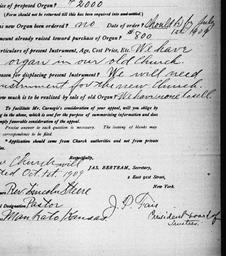 of proposed Organ? $2000
(Form should not be returned till this has been required into and settled)
new Organ been ordered? no Date of order? Should be July
1st 1909
mount already raised toward purchase of Organ? $800
rticulars of present Instrument, Age, Cost Price, Etc. We have
organ in our old Church
eason for displacing present Instrument? We will need
nstrument for the new Church.
much is to be realized by sale of old Organ? We have none to sell.
To facilitate Mr. Carnegie's consideration of your appeal, will you oblige by
in the above, which is sent for the purpose of summarizing information and does
imply favorable consideration of the appeal.
Precise answer to each question is necessary. The leaving of blanks may
correspondence to be ignored.
Application should come from Church authorities and not from private
Respectfully,
JAS. BERTRAM, Secretary,
2 East 91st Street,
New York.
Church will
Oct. 1st 1909
Rev. Lincoln
Designation, Pastor
Mankato Kansas
J. D.
President board of
Trustees.